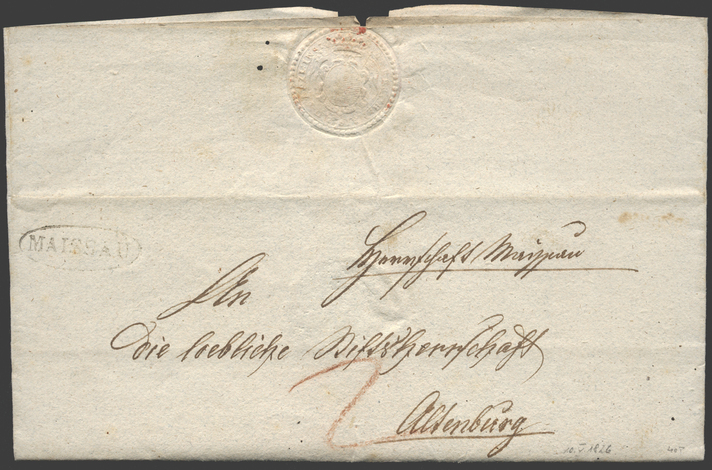 MAISSAU
Herrschaft Maissau
An
die loebliche Stiftsherrschaft
Altenburg
2